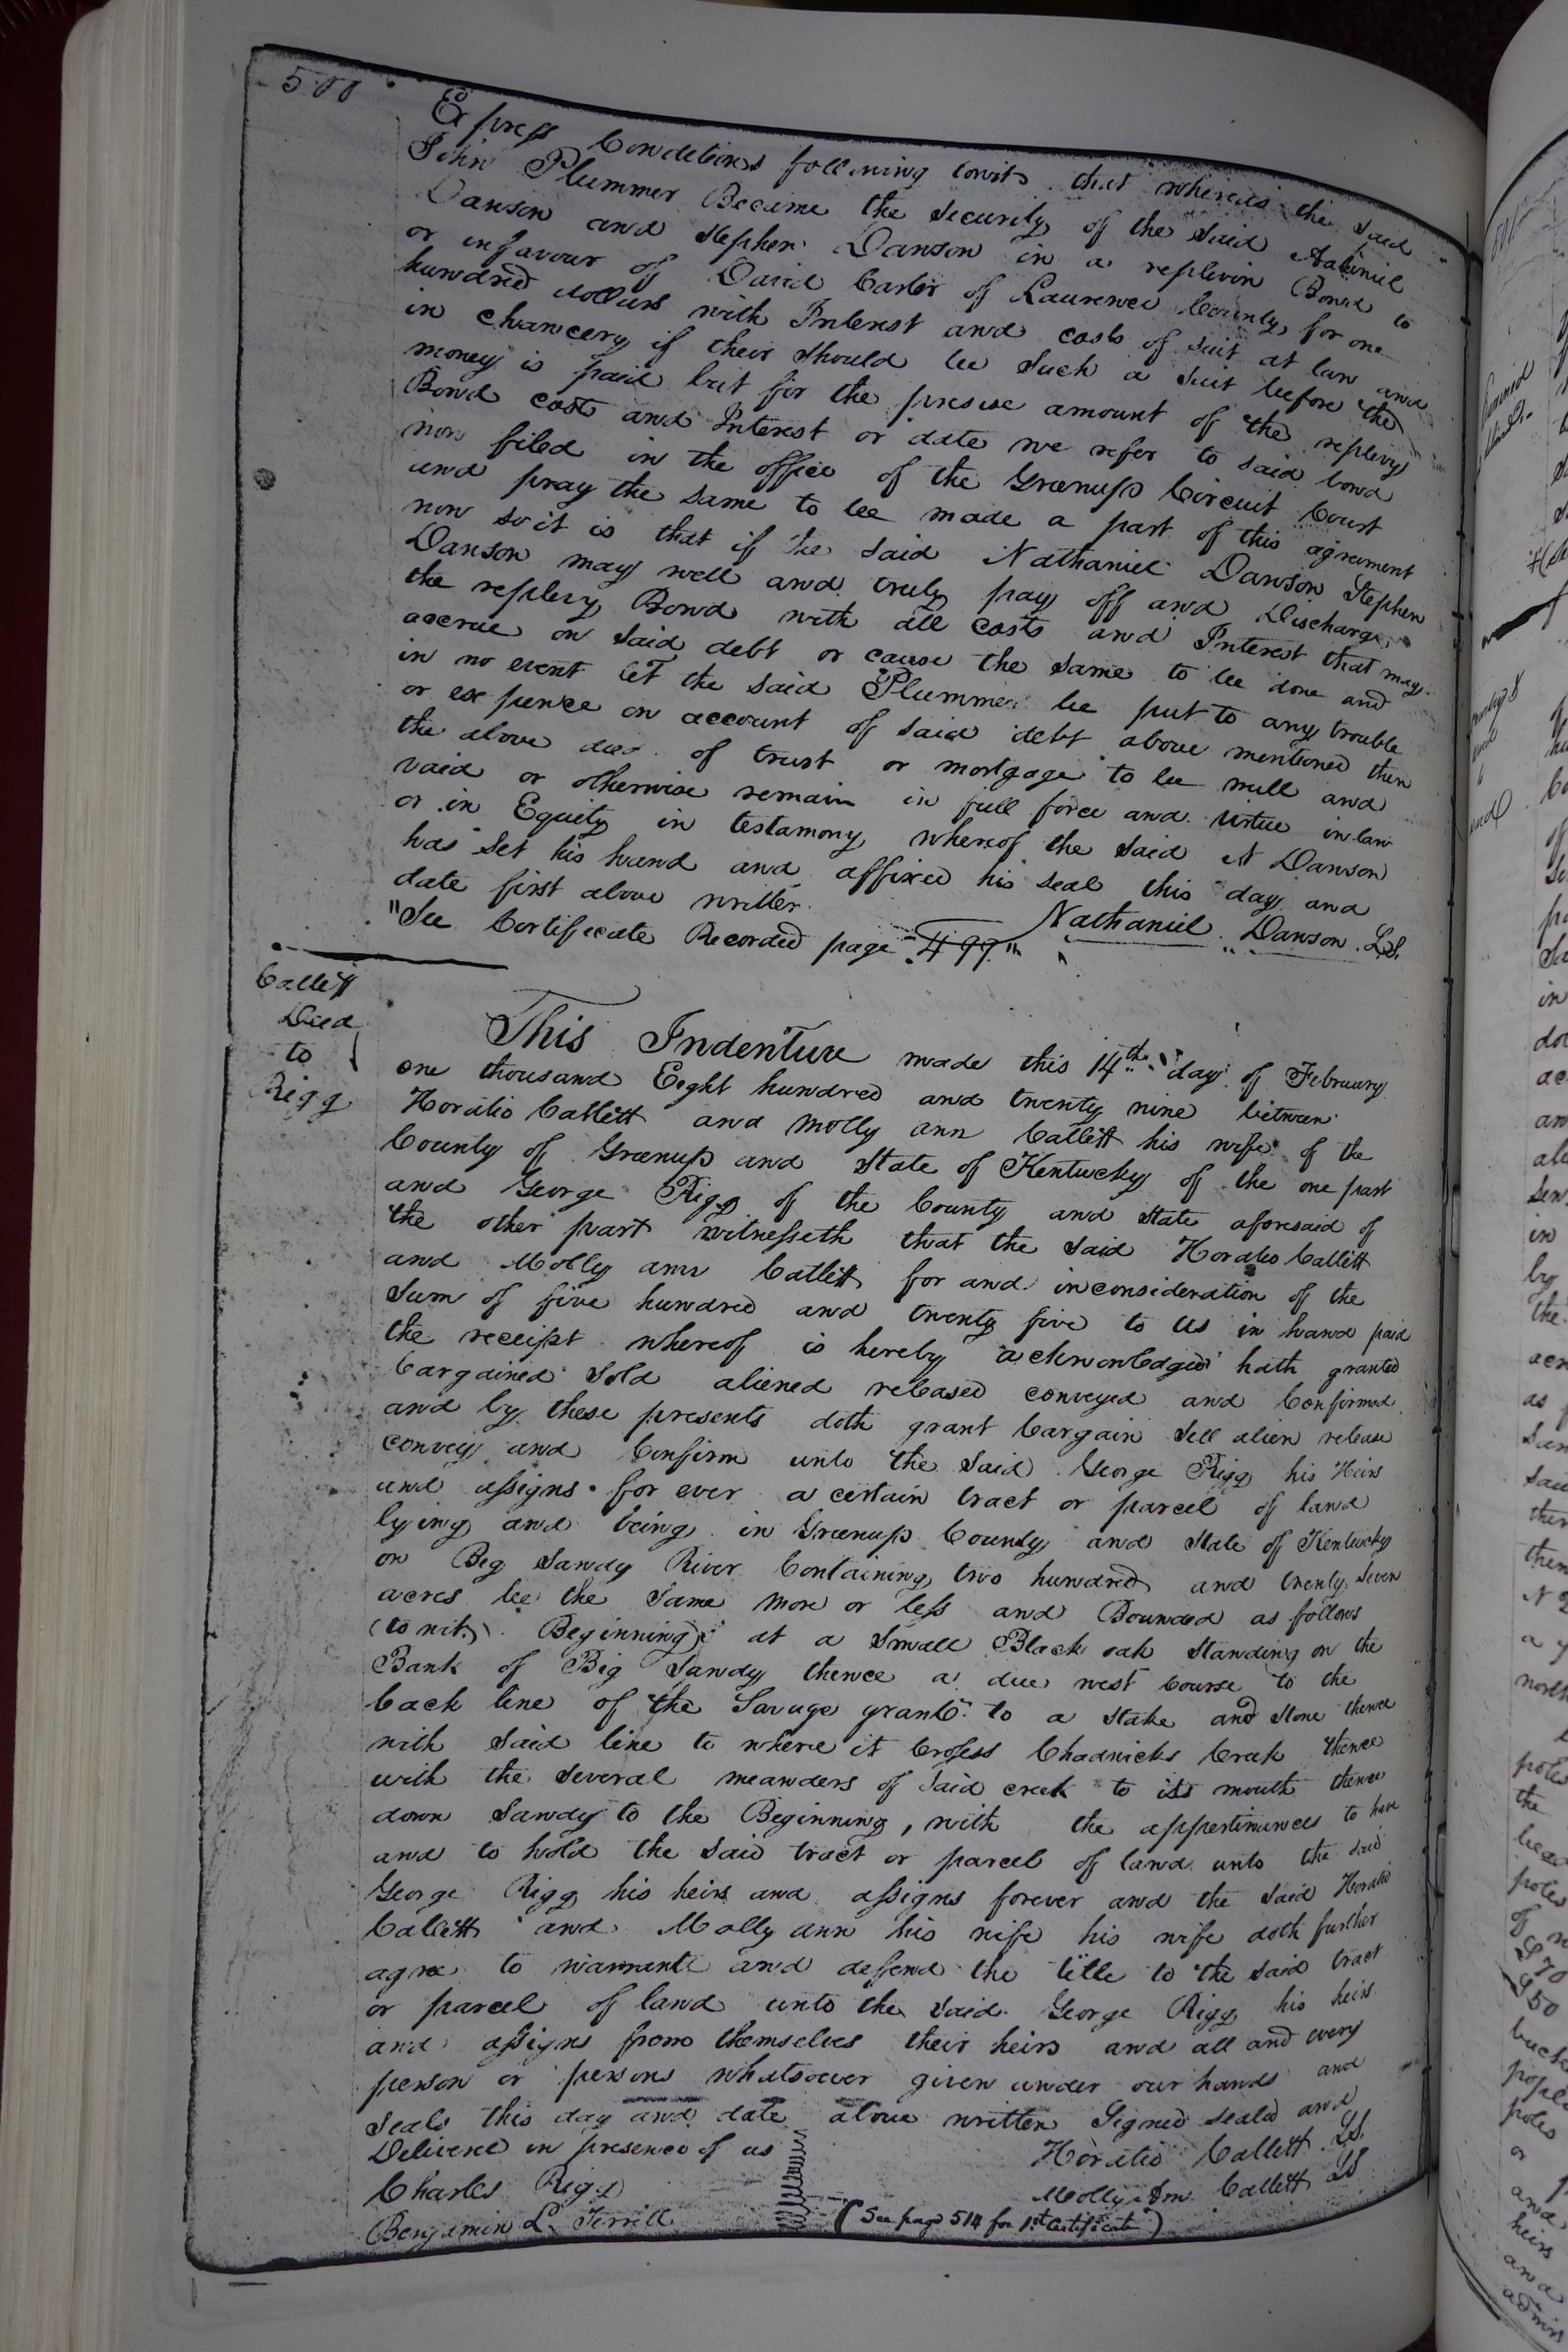 500
Express Conditions following towit that whereas the said
John Plummer Became the security of the said Nathaniel
Danson and Stephen Danson in a replevin Bond to
or infavour of David Carter of Laurence County for one
hundred dollars with Interest and costs of suit at law and
in chancery if their should be such a suit before the
money is paid but for the presise amount of the replevy
Bond cost and Interest or date we refer to said bond
now filed in the office of the Greenup Circuit Court
and pray the same to be made a part of this agreement
now so it is that if the said Nathaniel Danson Stephen
Danson may well and truly pay off and Discharge
the replevy Bond with all costs and Interest that may
accrue on said debt or cause the same to be done and
in no event let the said Plummer be put to any trouble
or expence on account of said debt above mentioned then
the above deed of trust or mortgage to be null and
void or otherwise remain in full force and virtue in law
or in Equity in testamony whereof the said N Danson
has set his hand and affixed his seal this day and
date first above written
Nathaniel Danson L.S.
"See Certificate Recorded page "499"
Catlett
Deed
to
Rigg
This Indenture made this 14th day of February
one thousand Eight hundred and twenty nine between
Horatio Catlett and Molly ann Catlett his wife of the
County of Greenup and State of Kentucky of the one part
and George Rigg of the County and State aforesaid of
the other part witnesseth that the said Horatio Catlett
and Molly ann Catlett for and inconsideration of the
Sum of five hundred and twenty five to us in hand paid
the receipt whereof is hereby acknowledged hath granted
bargained sold aliened released conveyed and Confirmed
and by these presents doth grant bargain sell alien release
convey and Confirm unto the said George Rigg his Heirs
and assigns for ever a certain tract or parcel of land
lying and being in Greenup County and State of Kentucky
on Big Sandy River Containing two hundred and twenty seven
acres be the same more or less and Bounded as follows
(to wit) Beginning at a small Black oak standing on the
Bank of Big Sandy thence a due west Course to the
back line of the Savage grant to a stake and stone thence
with said line to where it Crosess Chadwicks Creek thence
with the several meanders of said creek to its mouth thence
down Sandy to the Beginning, with the appertinances to have
and to hold the said tract or parcel of land unto the said
George Rigg his heirs and assigns forever and the said Horatio
Catlett and Molly ann his wife his wife doth further
agree to warrant and deffend the title to the said tract
or parcel of land unto the said George Rigg his heirs
and assigns from themselves their heirs and all and every
person or persons whatsoever given under our hands and
Seals this day and date above written Signed sealed and
Delivered in presence of us
Horatio Catlett L.S.
Charles Rigg
Molly Ann Catlett L.S.
Benjamin L. Terrill
(See page 514 for 1st Certificate)